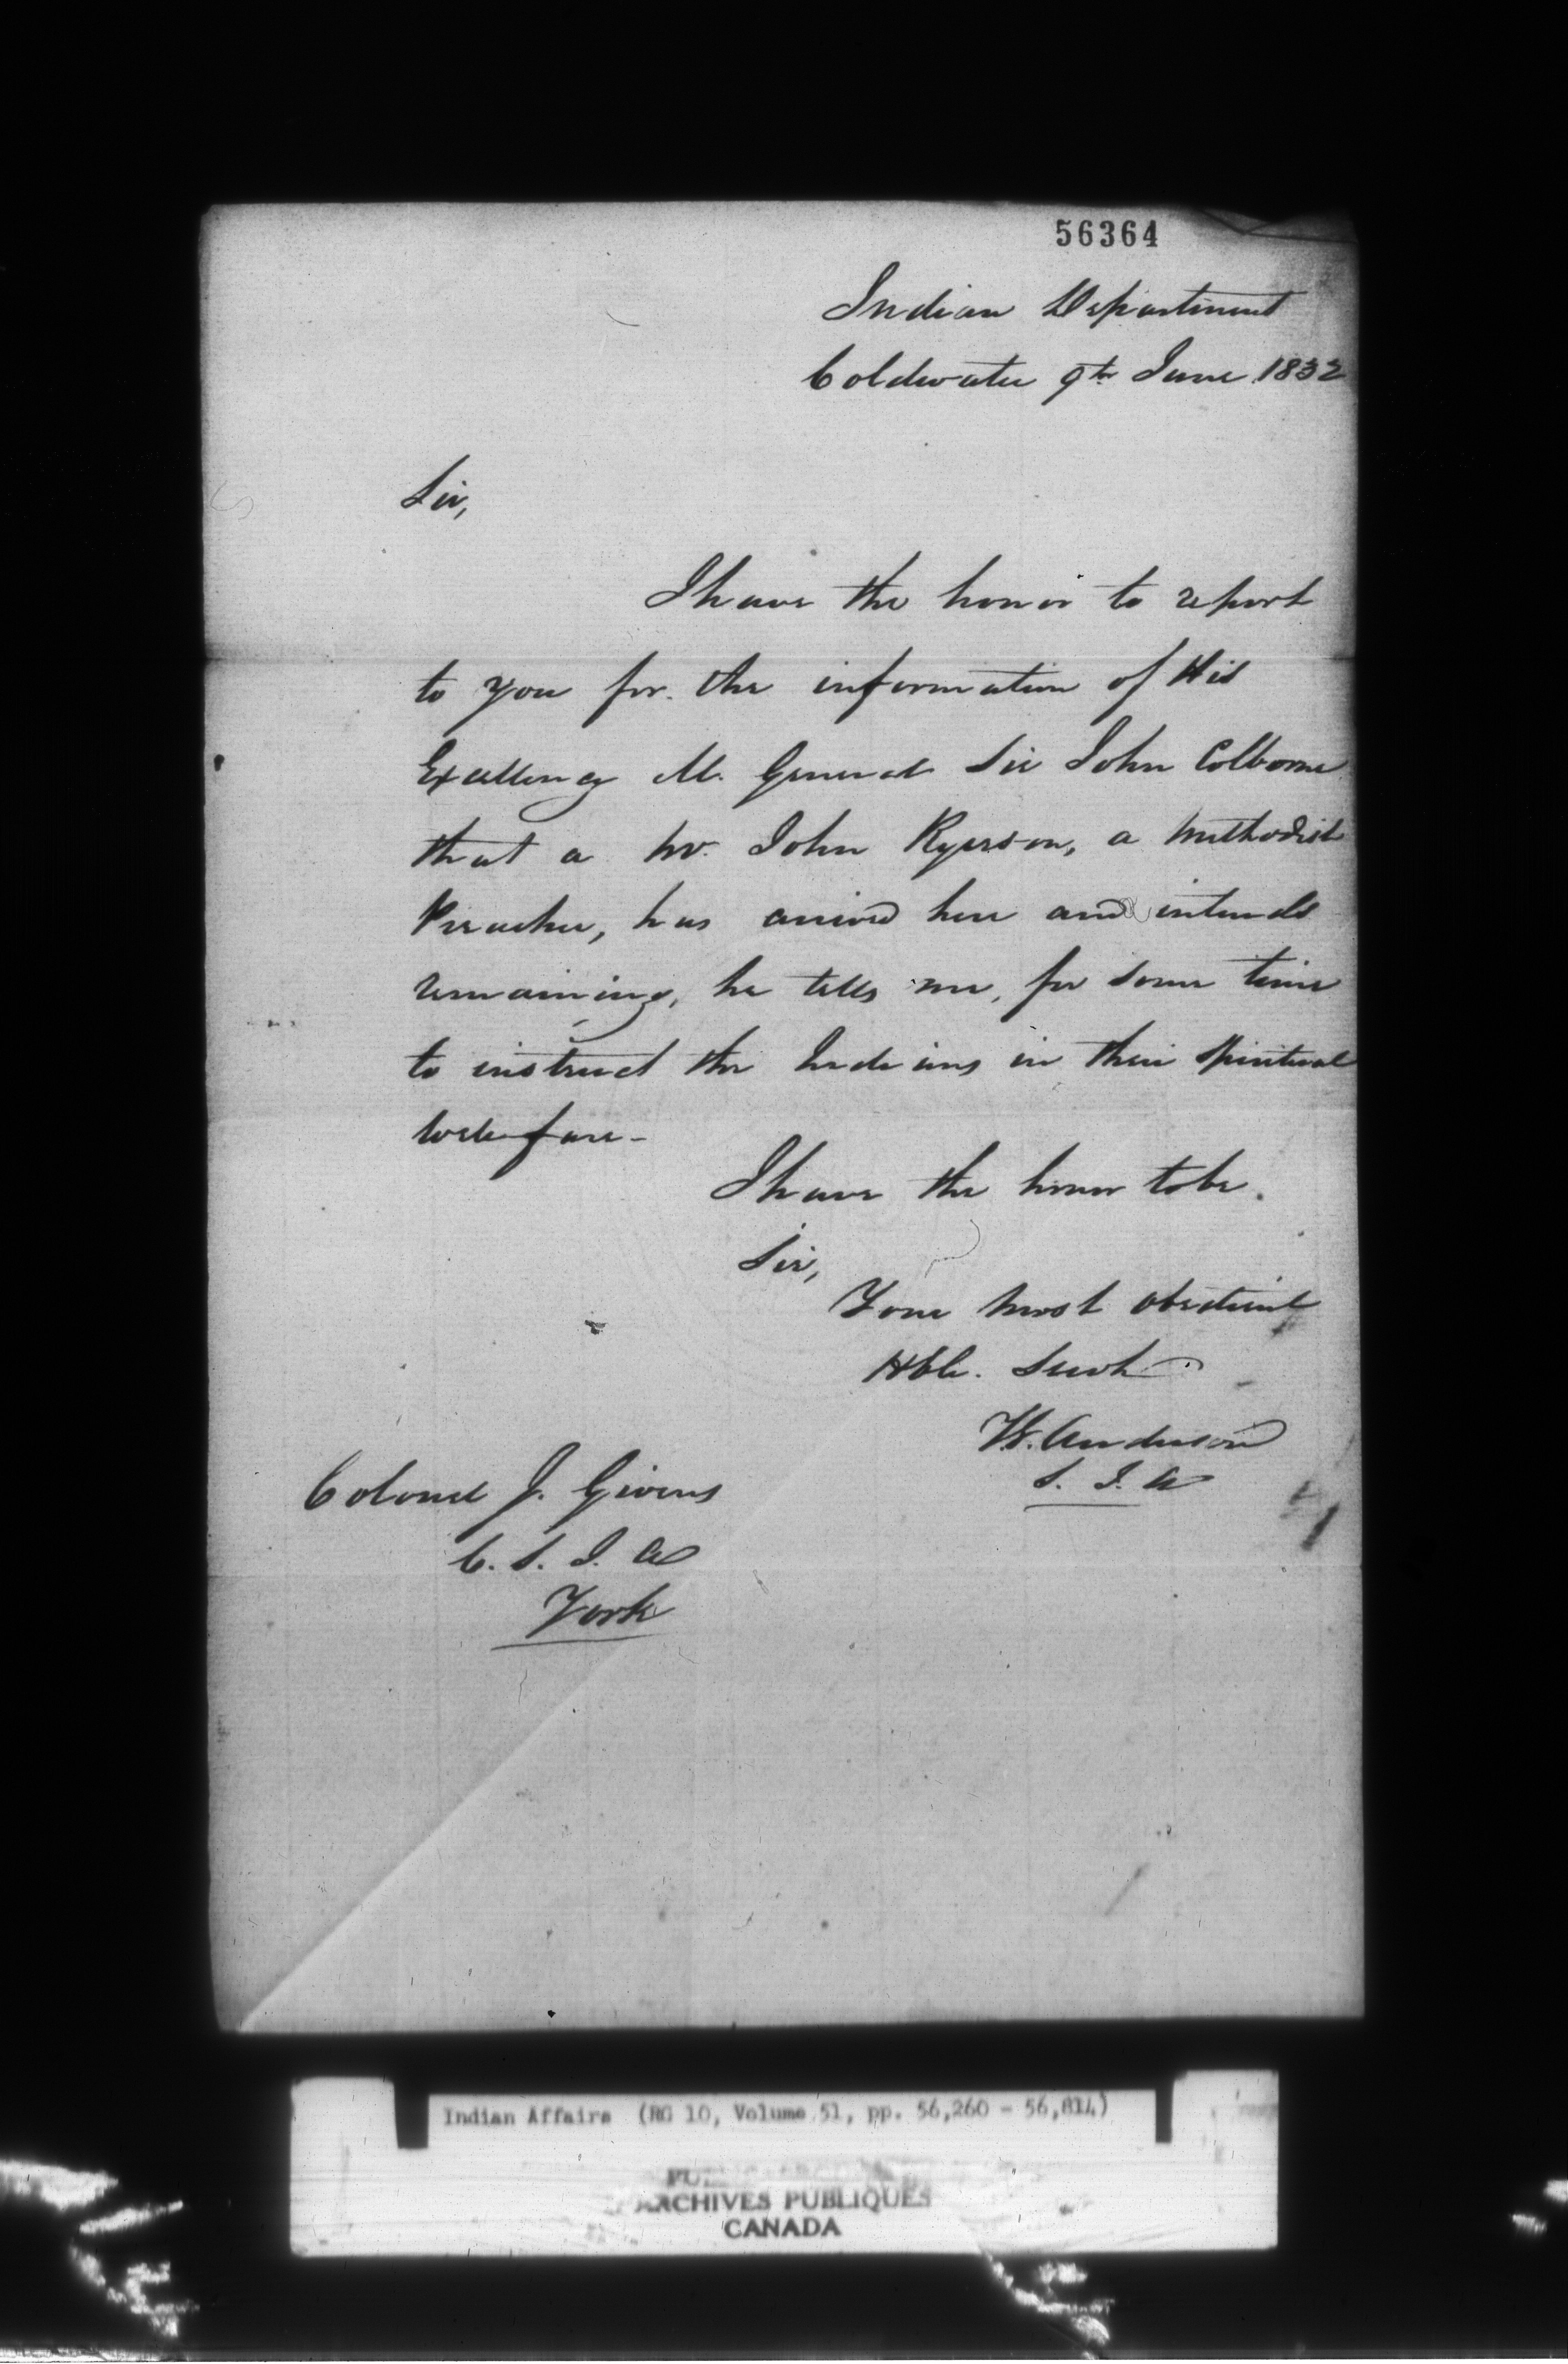 56364
Indian Department
Coldwater 9th June 1832
Sir,
I have the honor to report
to you for the information of His
Excellency M. General Sir John Colborne
that a Mr. John Ryerson, a Methodist
Preacher, has arrived here and intends
remaining, he tells me, for some time
to instruct the Indians in their Spiritual
welefare -
I have the honor to be
Sir,
Your most obedient
Hble. Servt
W. Anderson
S. I. A
Colonel J. Givens
C. S. I. A
York
Indian Affairs (RG 10, Volume 51, pp. 56,260 - 56,814)
ARCHIVES PUBLIQUES
CANADA